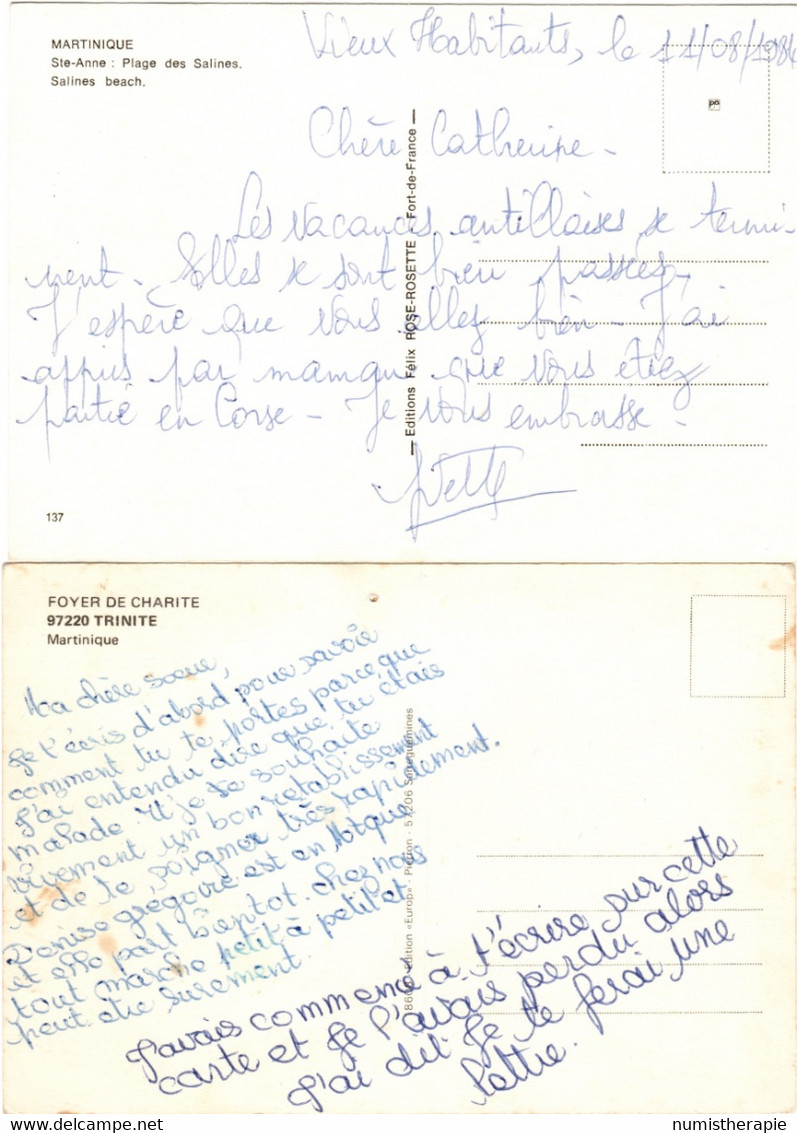 MARTINIQUE
Ste-Anne : Plage des Salines.
Salines beach.
Vieux Habitants, le 11/08/1984
Chère Catherine -
Les vacances antillaises se termi-
nent. Elles se sont bien passées,
J'espère que vous allez bien - J'ai
appris par maman que vous étiez
partie en Corse - Je vous embrasse -
— Editions Félix ROSE-ROSETTE — Fort-de-France —
137
FOYER DE CHARITE
97220 TRINITE
Martinique
Ma chère soeur,
Je t'écris d'abord pour savoir
comment tu te portes parce que
J'ai entendu dire que tu étais
malade et je te souhaite
vivement un bon retablissement
et de te soigner très rapidement.
Denise grégoire est en Mtque
et elle part bientot. chez nous
tout marche petit à petit et
peut etre surement.
Edition «Europ» - Pierron - 57206 Sarreguemines
J'avais commencé à t'écrire sur cette
carte et je l'avais perdu alors
J'ai dit je te ferai une
lettre.
numistherapie